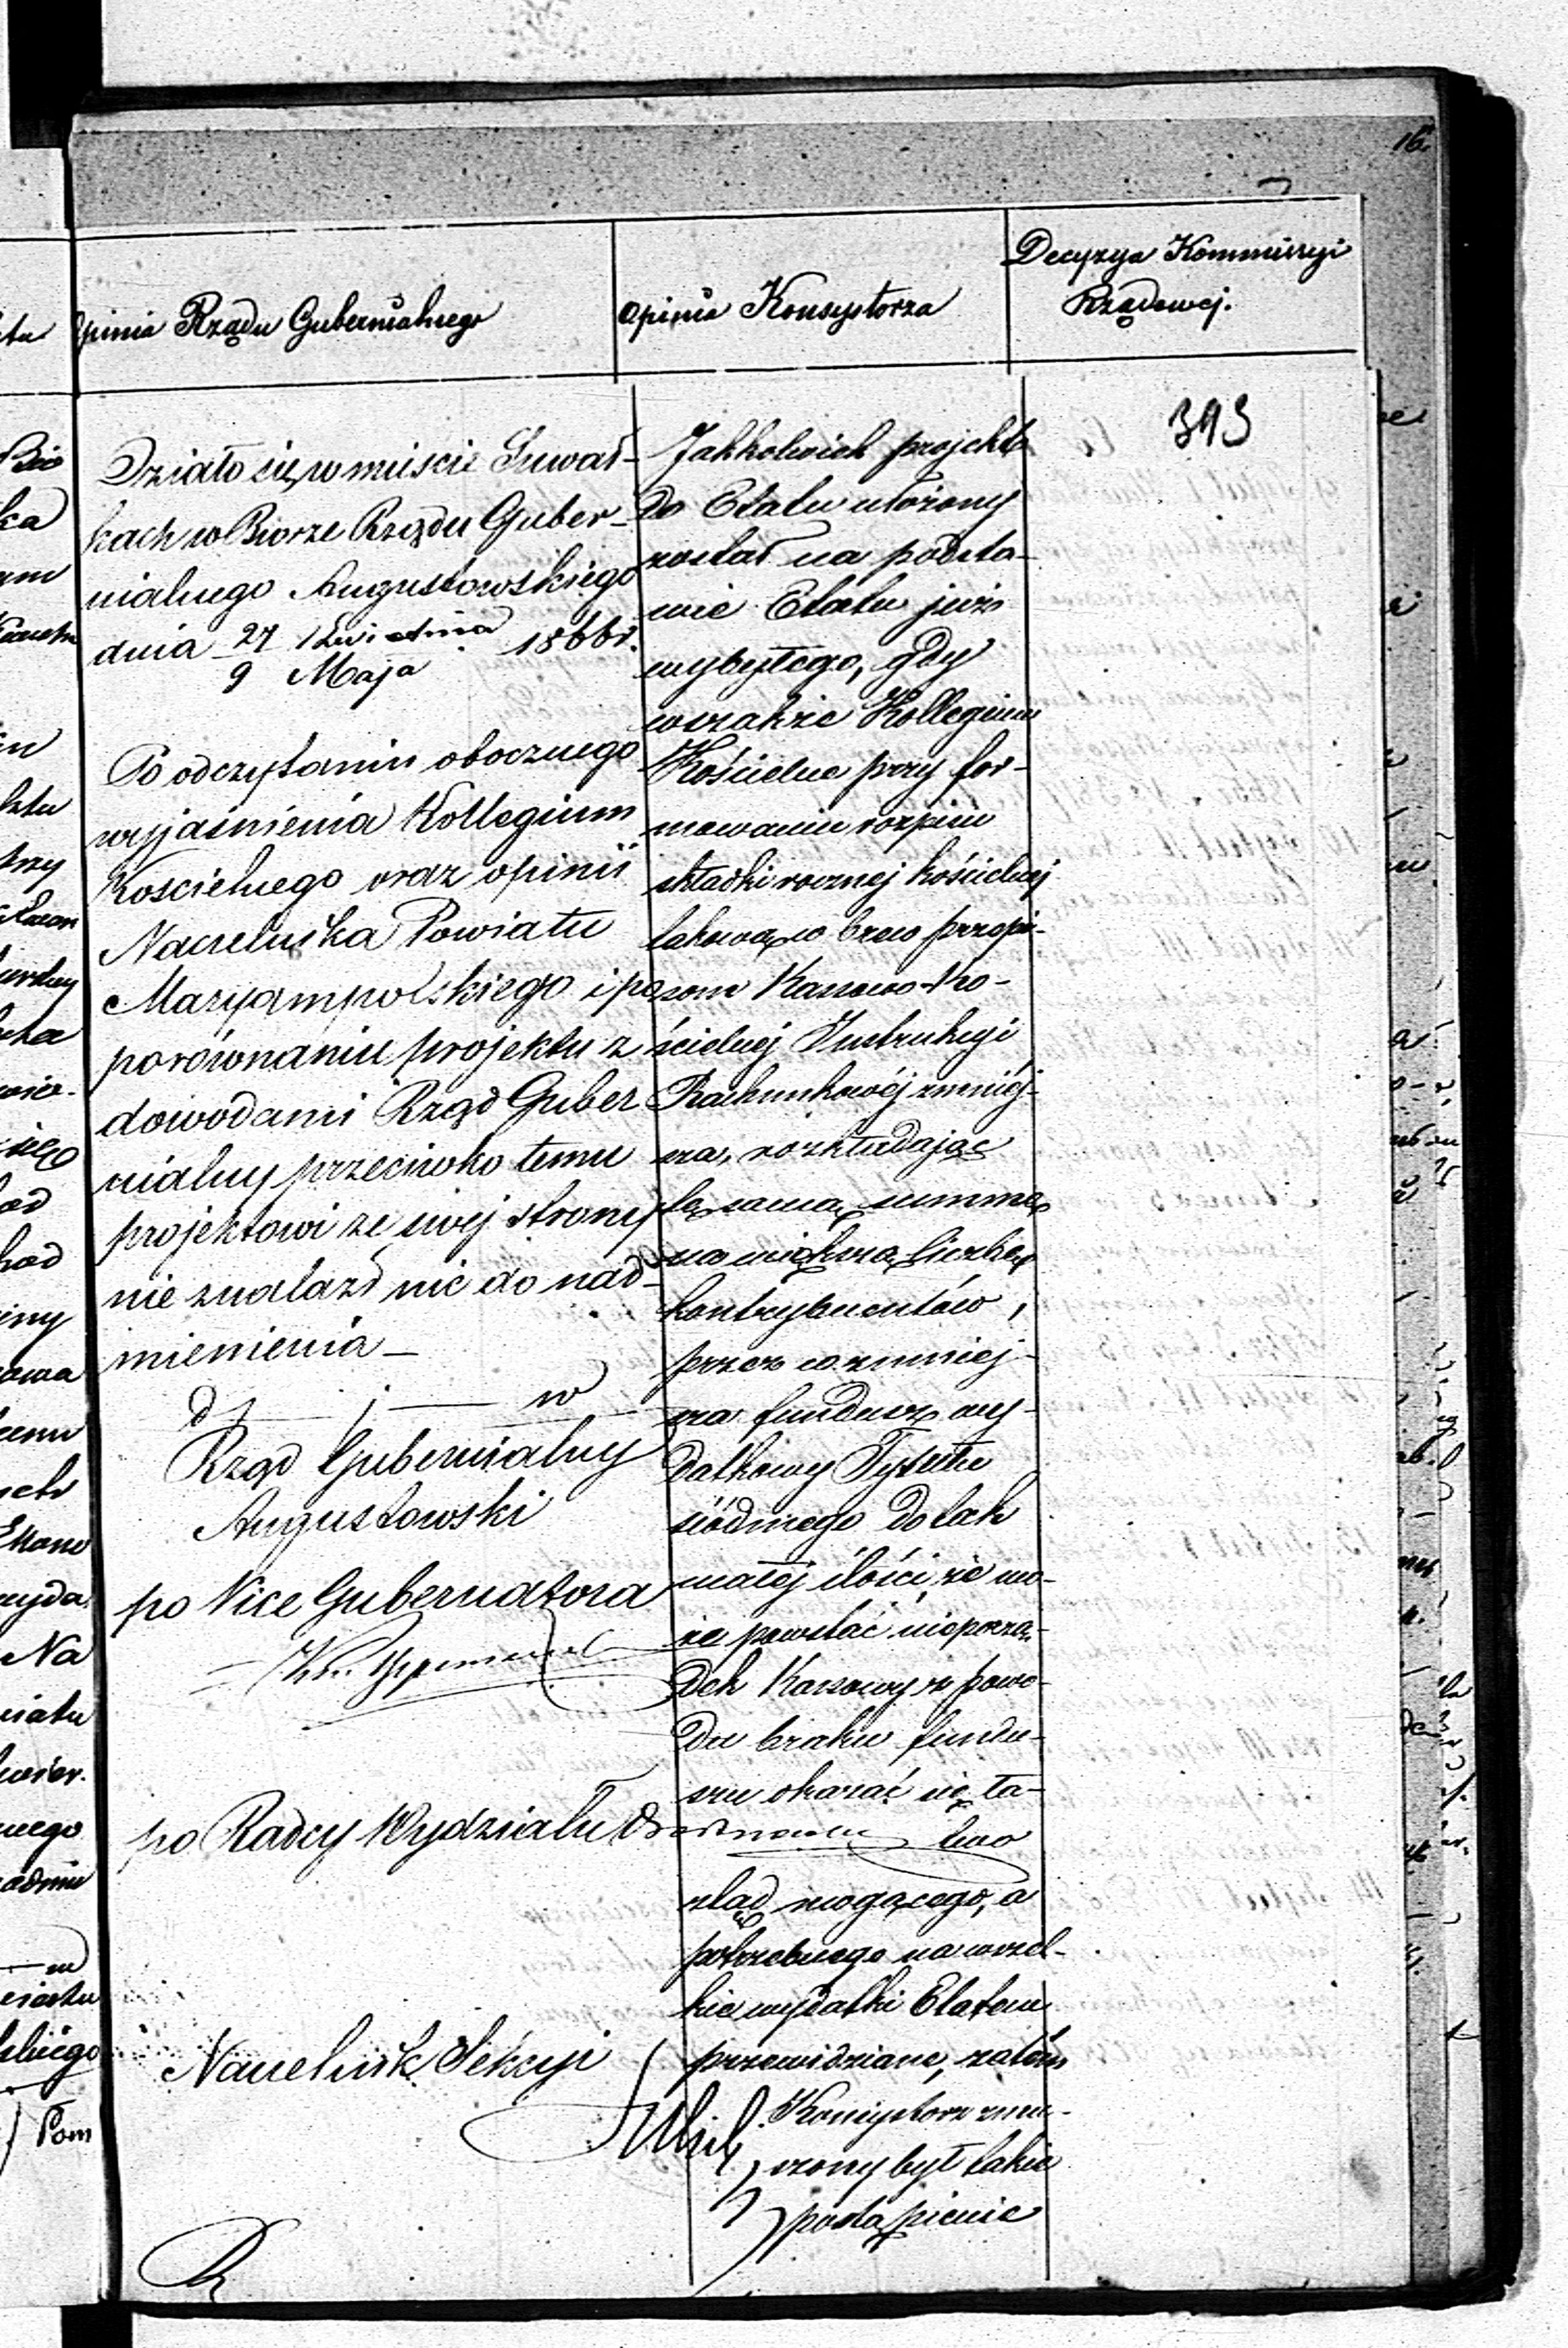 16.
Opinia Rządu Gubernialnego
Opinia Konsystorza
Decyzya Kommissyi
Rządowej.
Działo się w mieście Suwał-
kach w Biórze Rządu Guber-
nialnego Augustowskiego
dnia 27 Kwietnia 1866 r.
9 Maja
Po odczytaniu obocznego
wyjaśnienia Kollegium
Kościelnego oraz opinii
Naczelnika Powiatu
Maryampolskiego i po
porównaniu projektu z
dowodami Rząd Guber
nialny przeciwko temu
projektowi ze swej strony
nie znalazł nic do nad-
mienienia —
d j w
Rząd Gubernialny
Augustowski
po Vice Gubernatora
po Radcy Wydziału
Naczelnik Sekcyi
Jakkolwiek projekt
do Etatu ułożony
został na podsta-
wie Etatu już
wybyłego, gdy
wszakże Kollegium
Kościelne przy for-
mowaniu rozpisu
składki rocznej kościelnej
takową wbrew przepi-
som Kassowo-Ko-
ścielnej Instrukcyi
Rachunkowéj zmniéj-
sza, rozkładając
tę samą summę
na większą liczbę
kontrybuentów,
przez co zmniej-
sza fundusz wy-
datkowy Tytułu
siódmego do tak
małej ilości, że mo-
że powstać nieporzą-
dek Kassowy z powo-
du braku fundu-
szu okazać się ła-
two
ztąd mogącego, a
potrzebnego na wszel-
kie wydatki Etatem
przewidziane, zatém
Konsystorz zmu-
szony był takie
postąpienie
343